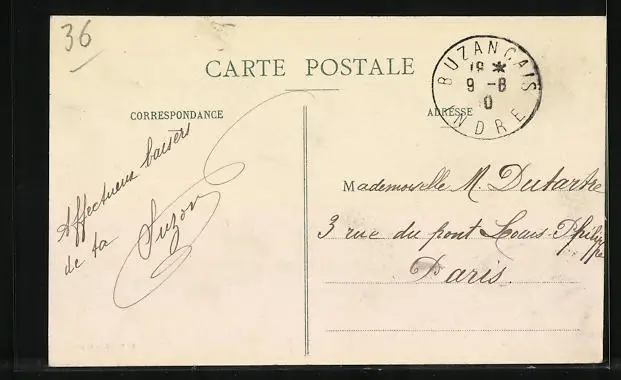 36
CARTE POSTALE
BUZANCAIS
18 *
9 - 8
10
INDRE
CORRESPONDANCE
ADRESSE
Affectueux baisers
de ta Suzon
Mademoiselle M. Dutartre
3 rue du pont Louis-Philippe
Paris.